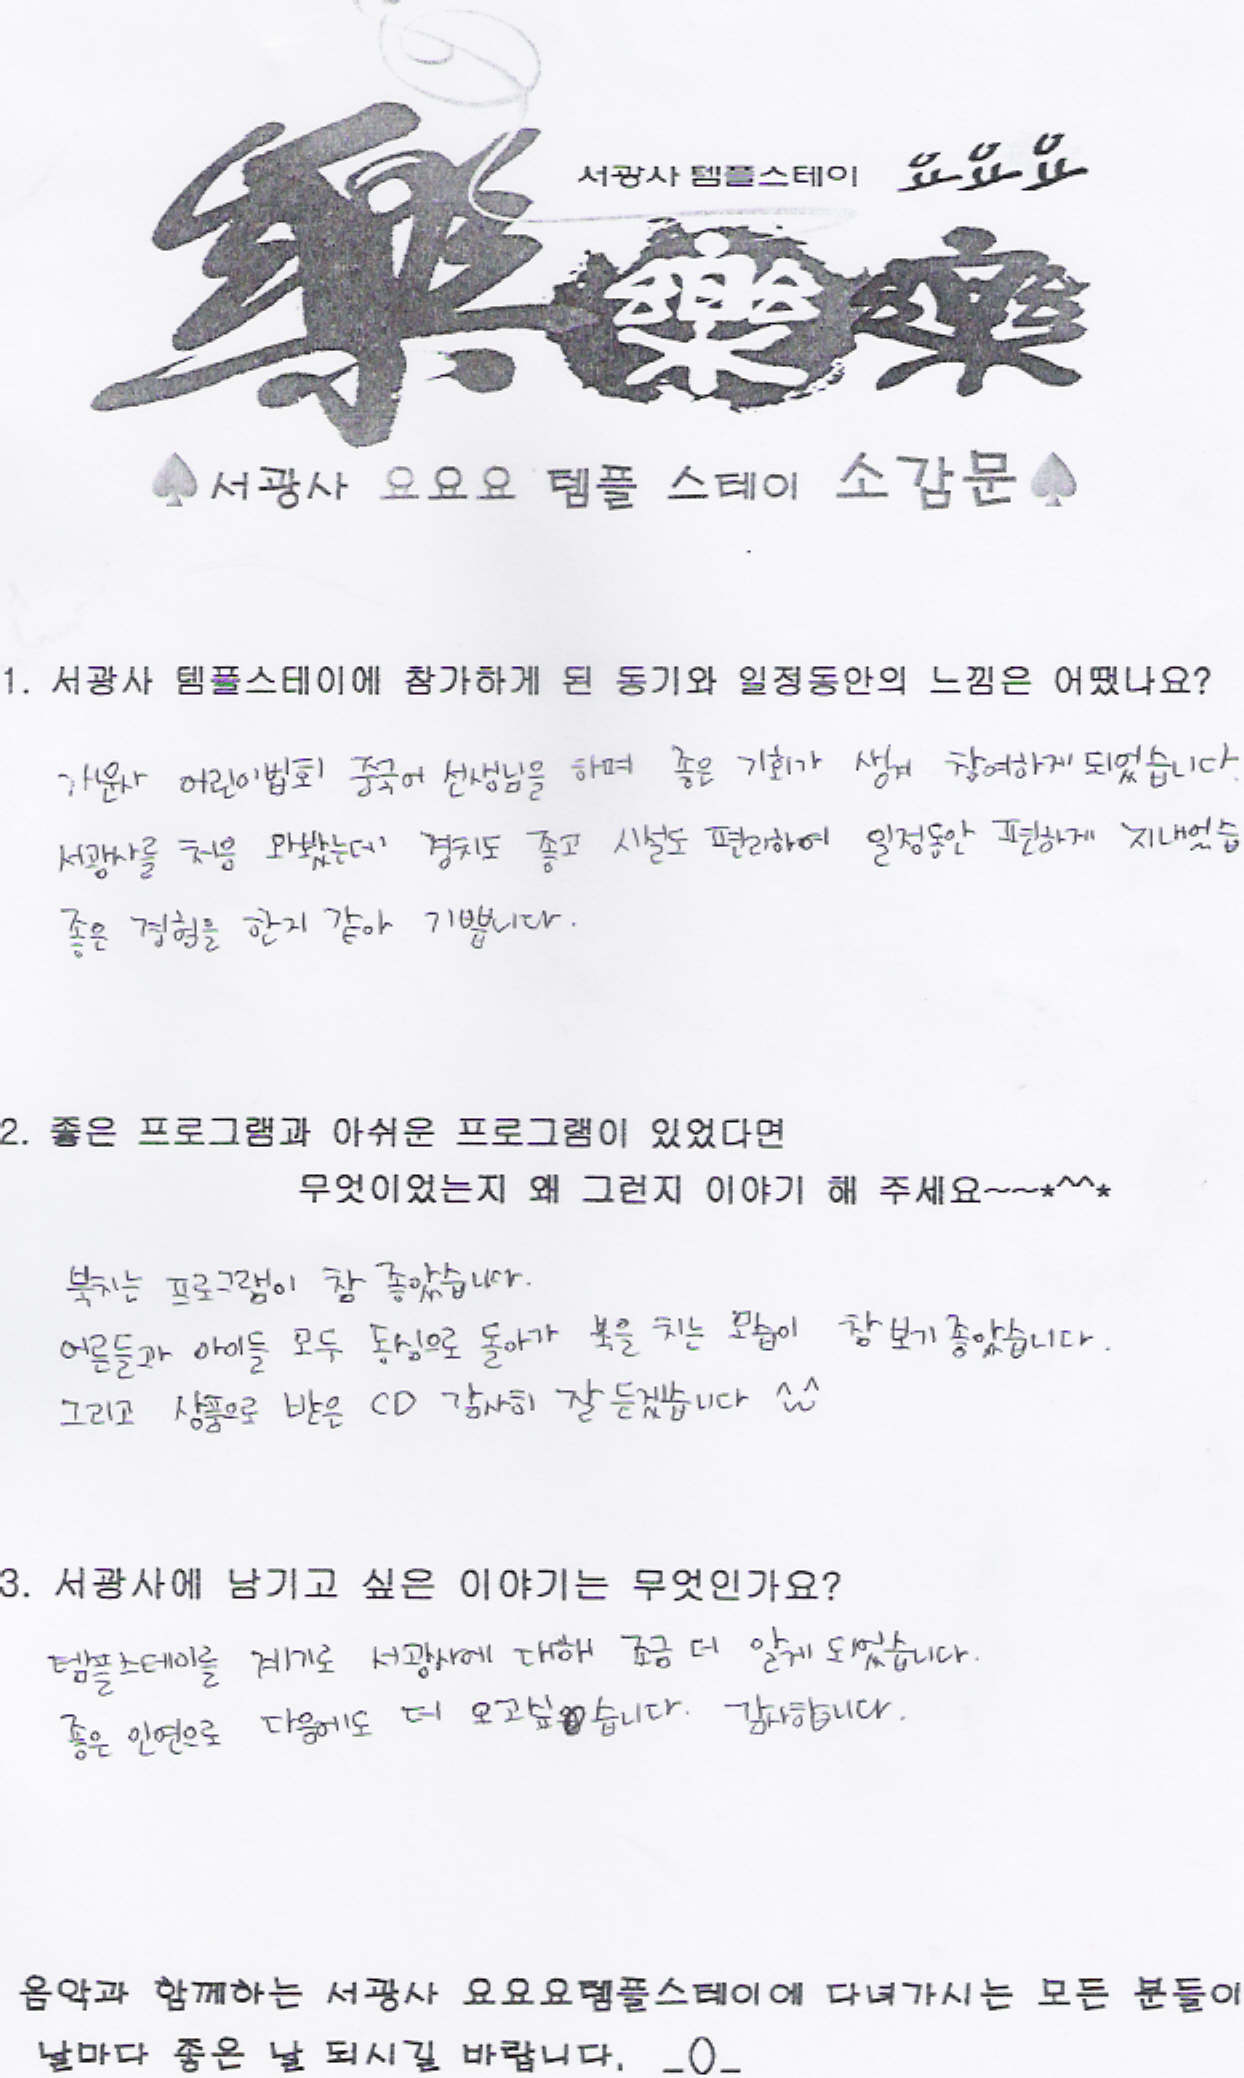 서광사 템플스테이 요요요
樂樂樂
서광사 요요요 템플 스테이 소감문
1. 서광사 템플스테이에 참가하게 된 동기와 일정동안의 느낌은 어땠나요?
어린이법회 중국어 선생님을 하며 좋은 기회가 생겨 참여하게 되었습니다.
서광사를 처음 와봤는데 경치도 좋고 시설도 편리하여 일정동안 편하게 지내었습
좋은 경험을 한지 같아 기쁩니다.
2. 좋은 프로그램과 아쉬운 프로그램이 있었다면
무엇이었는지 왜 그런지 이야기 해 주세요~~*^^*
북치는 프로그램이 참 좋았습니다.
어른들과 아이들 모두 동심으로 돌아가 북을 치는 모습이 참 보기 좋았습니다.
그리고 상품으로 받은 CD 감사히 잘 듣겠습니다 ^^
3. 서광사에 남기고 싶은 이야기는 무엇인가요?
템플스테이를 계기로 서광사에 대해 조금 더 알게 되었습니다.
좋은 인연으로 다음에도 더 오고싶습니다. 감사합니다.
음악과 함께하는 서광사 요요요템플스테이에 다녀가시는 모든 분들이
날마다 좋은 날 되시길 바랍니다. _()_